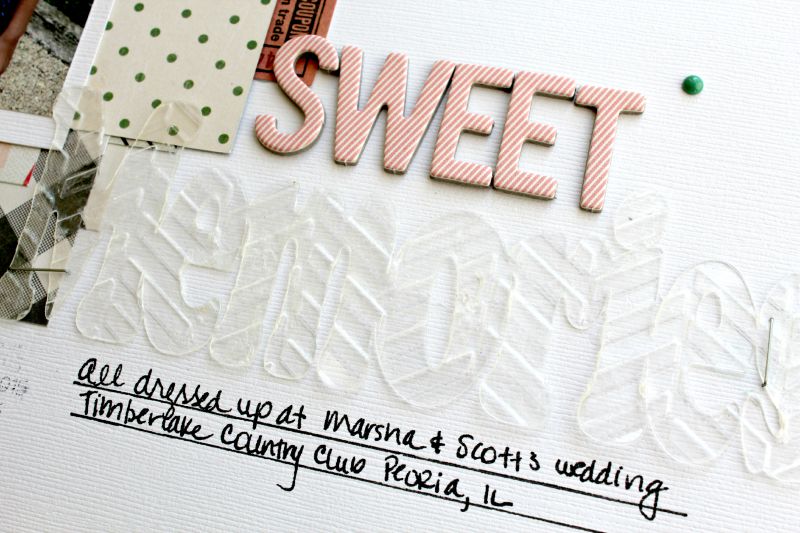 COUPON
n trade
SWEET
memories
All dressed up at Marsha & Scott's wedding
Timberlake Country Club Peoria, IL